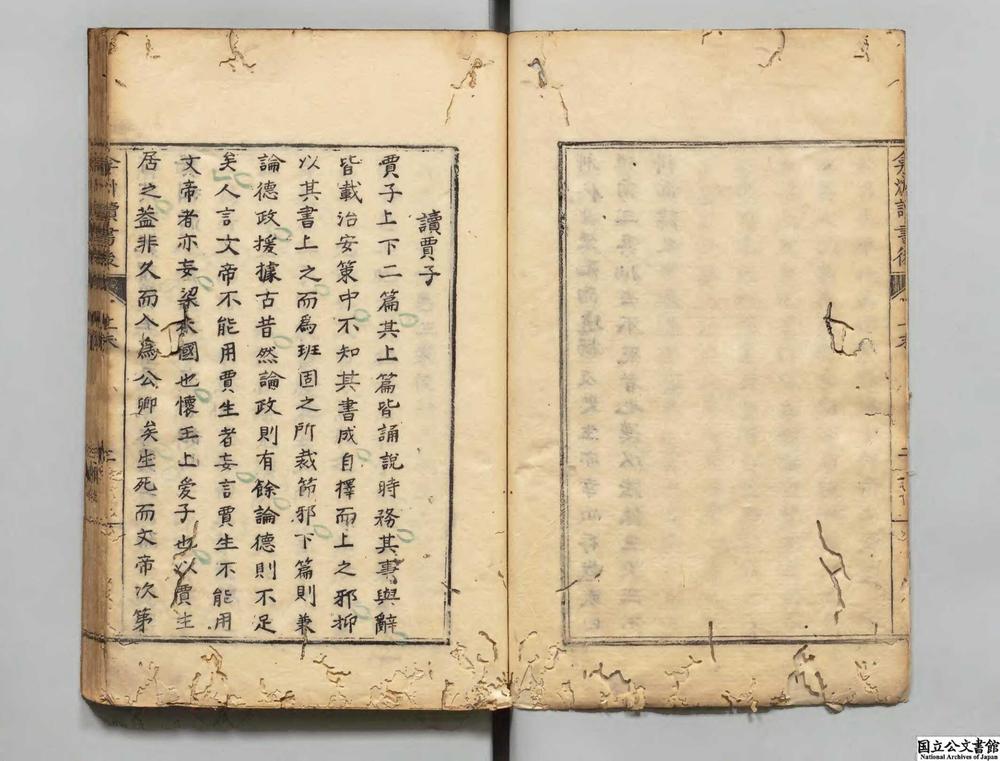 讀賈子
賈子上下二篇其上篇皆誦說時務其事與辭
皆載治安策中不知其書成自擇而上之邪抑
以其書上之而為班固之所裁節邪下篇則兼
論德政援據古昔然論政則有餘論德則不足
矣人言文帝不能用賈生者妄言賈生不能用
文帝者亦妄梁大國也懷王上愛子也以賈生
居之葢非久而入為公卿矣生死而文帝次第
弇州讀書後
国立公文書館
National Archives of Japan